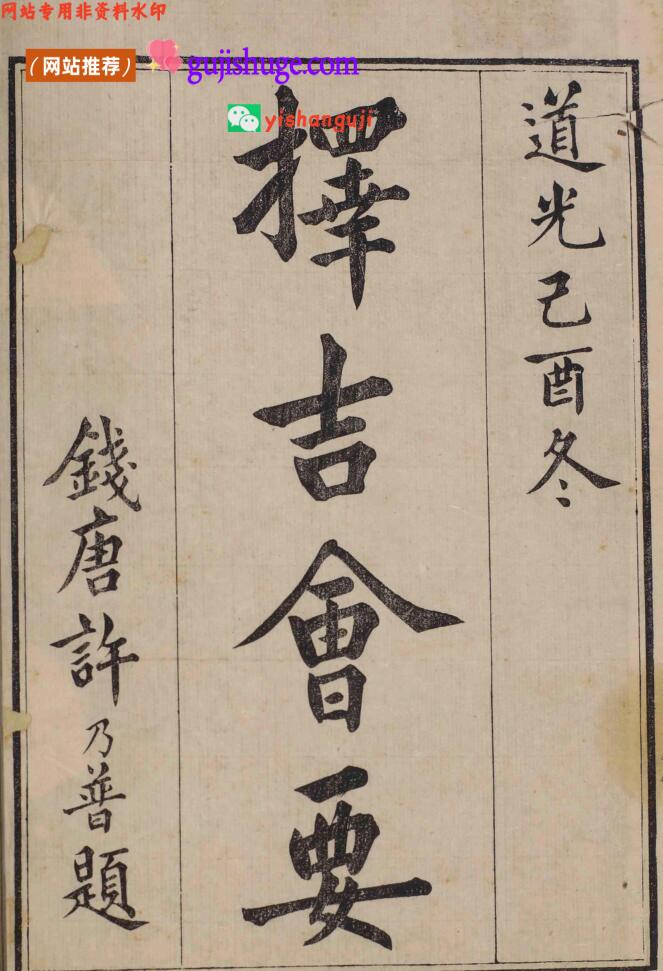 网站专用非资料水印
（网站推荐）
gujishuge.com
yishanguji
道光己酉冬
擇吉會要
錢唐許乃普題